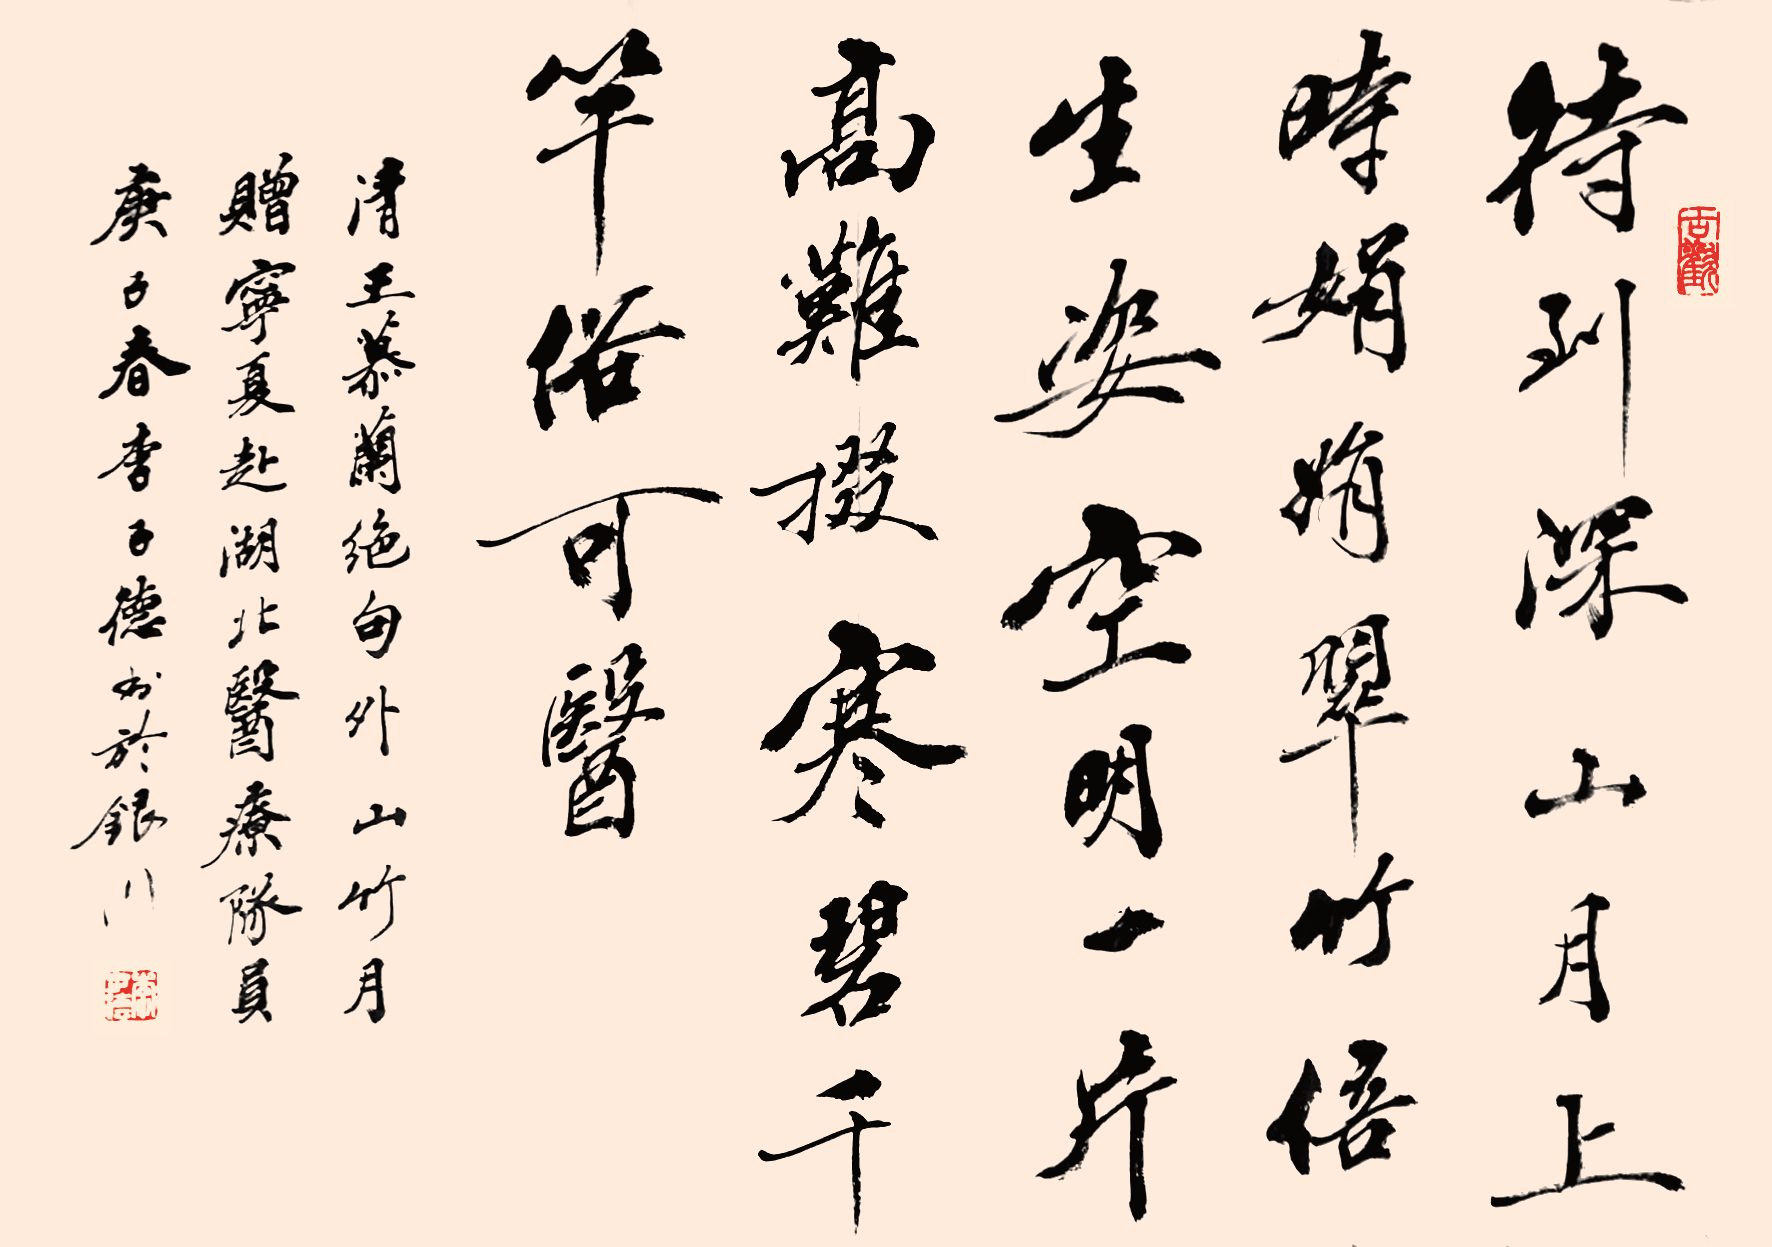 待到深山月上
時娟娟翠竹倍
生姿空明一片
高難掇寒碧千
竿俗可醫
清王慕蘭绝句外山竹月
贈寧夏赴湖北醫療隊員
庚子春李子德書於銀川